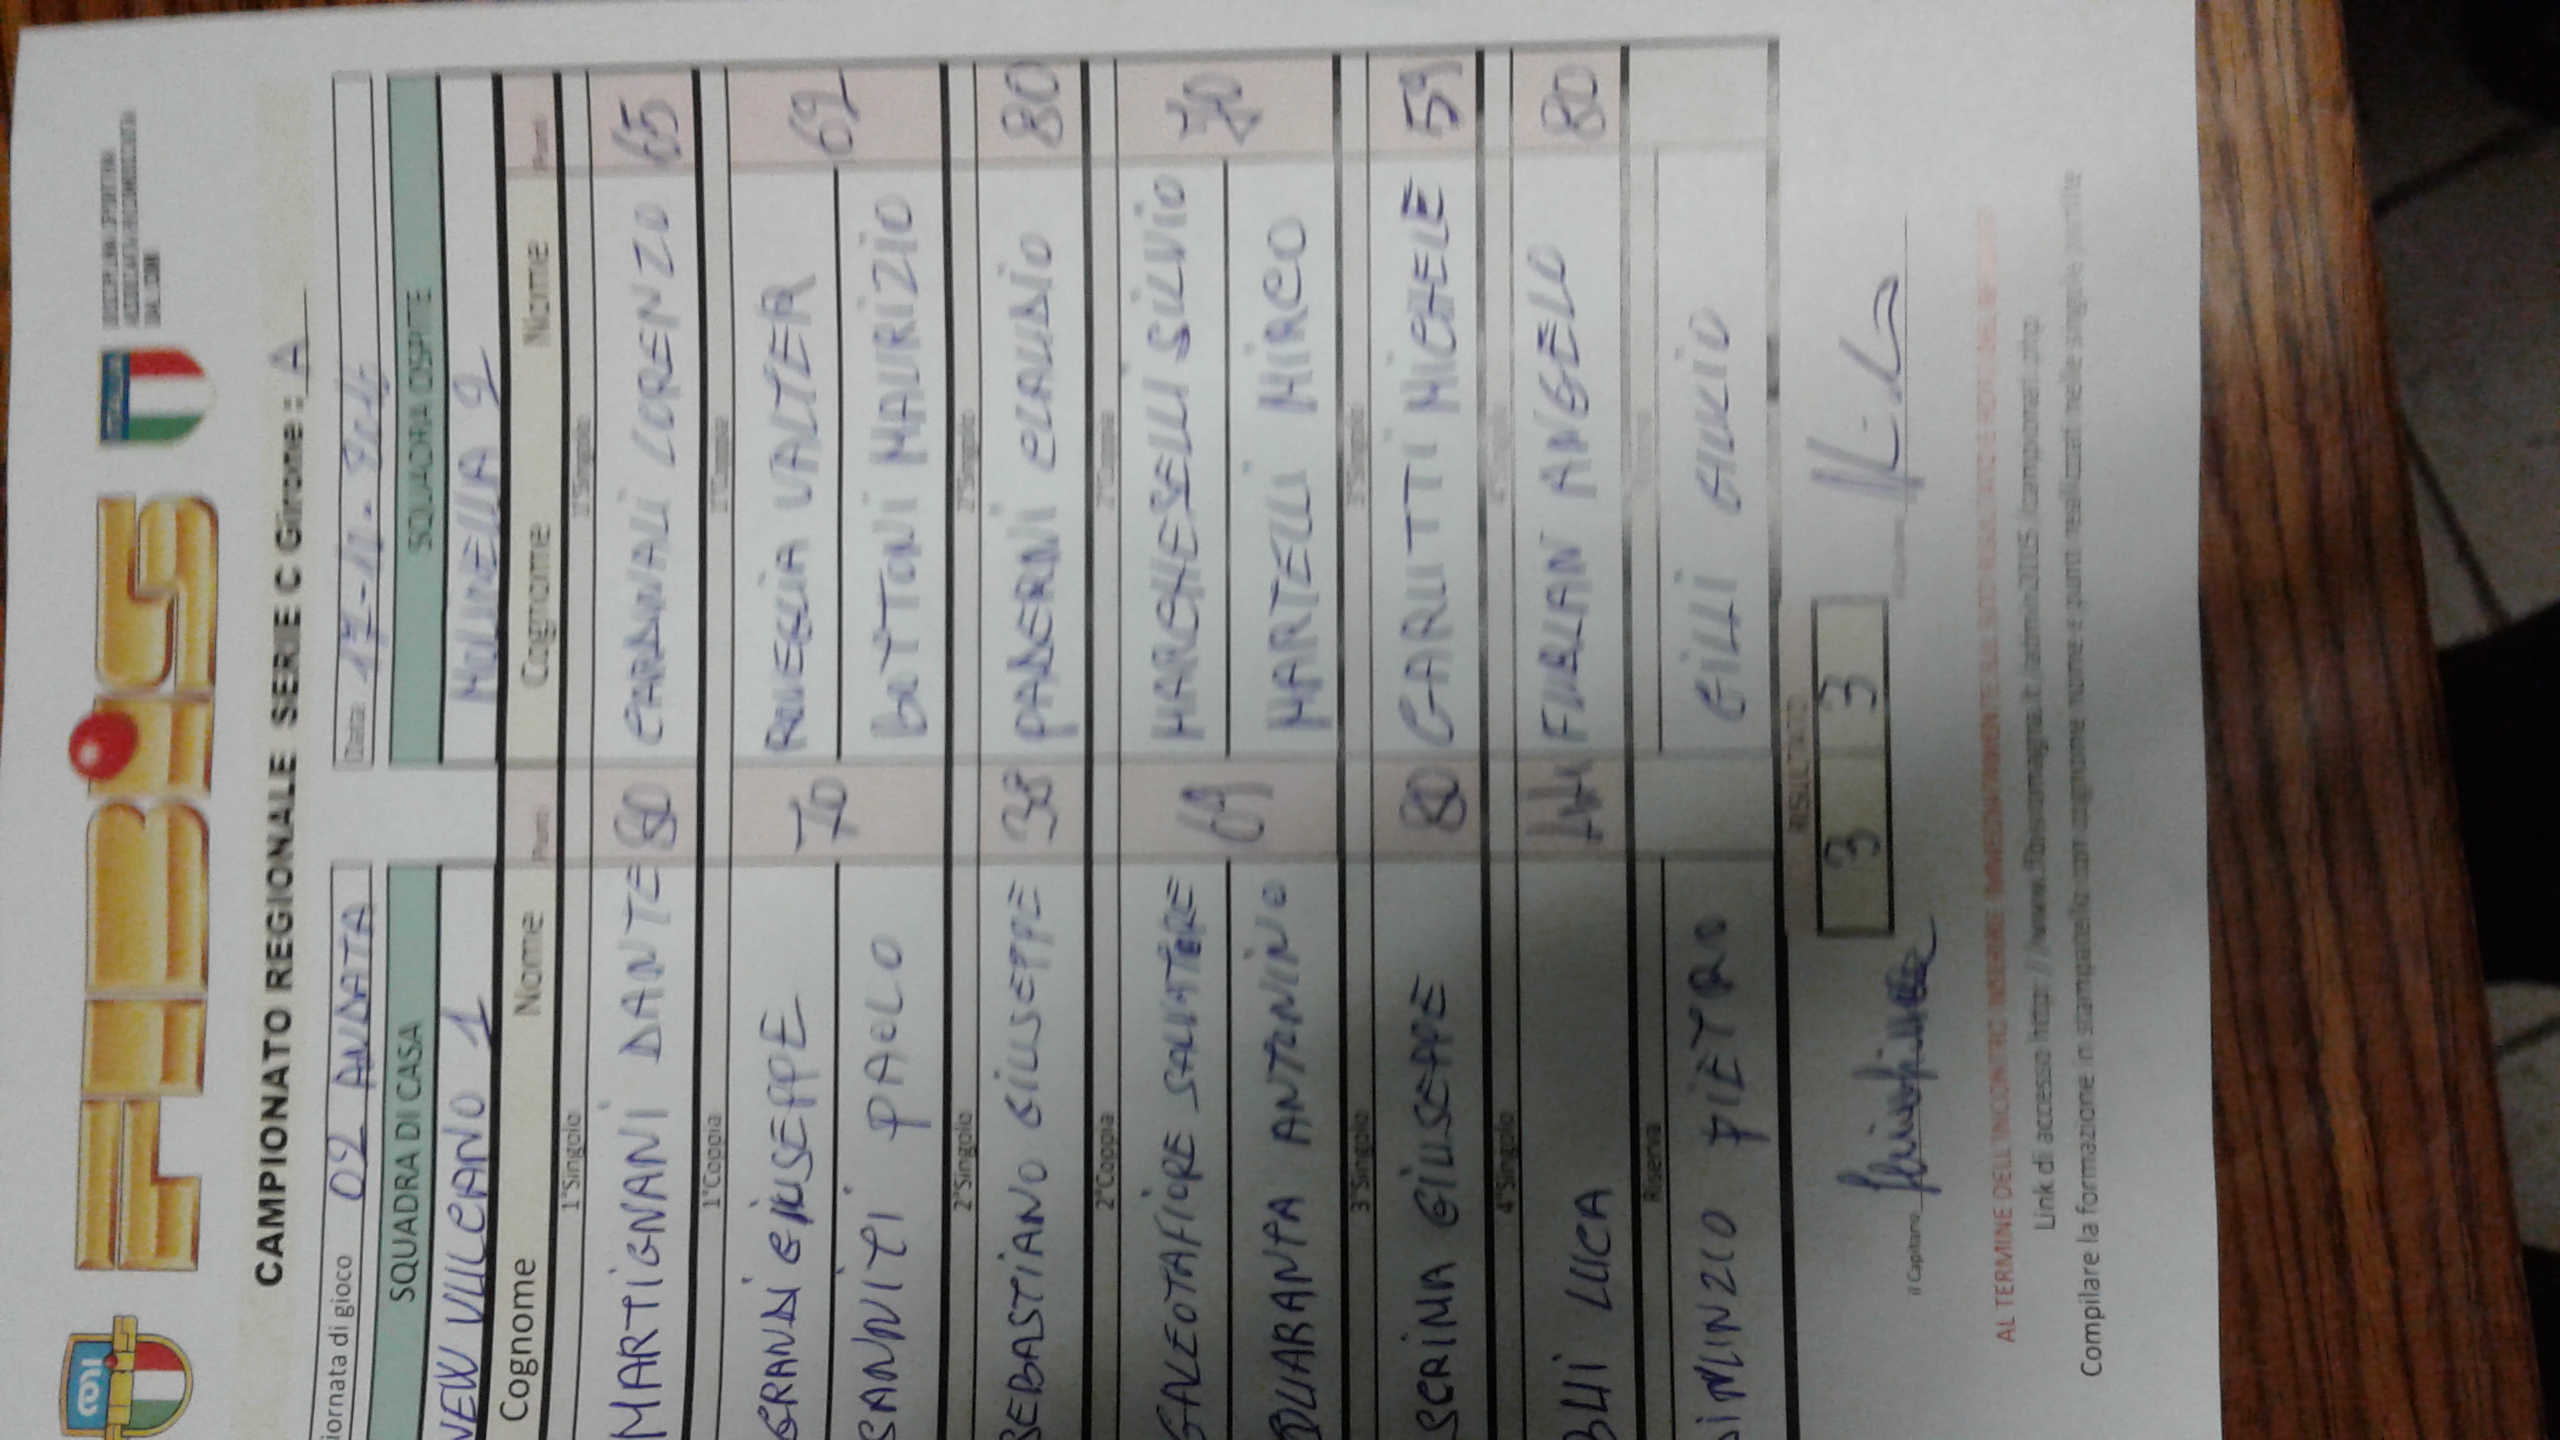 FIBiS
CAMPIONATO REGIONALE SERIE C Girone: A
iornata di gioco 02 ANDATA Data
SQUADRA DI CASA SQUADRA OSPITE
NEW VULCANO 1 MOLINELLA 2
Cognome Nome Punti Cognome Nome Punti
1°Singolo 1°Singolo
MARTIGNANI DANTE 80 CARDINALI LORENZO 65
1°Coppia 1°Coppia
GRANDI GIUSEPPE 70 ROVEGLIA VALTER 62
SANNITI PAOLO BOTTONI MAURIZIO
2°Singolo 2°Singolo
SEBASTIANO GIUSEPPE 38 PADERNI CLAUDIO 80
2°Coppia 2°Coppia
GALEOTAFIORE SALVATORE 69 MARCHESELLI SILVIO 70
QUARANTA ANTONINO MARTELLI MIRCO
3°Singolo 3°Singolo
SCRIMA GIUSEPPE 80 GARUTTI MICHELE 59
4°Singolo 4°Singolo
LUCA 44 FURLAN ANGELO 80
Riserva
PIETRO GILLI GIULIO
RISULTATO
3 3
il Capitano
AL TERMINE DELL'INCONTRO INSERIRE IMMEDIATAMENTE SUL SITO RISULTATO E
Link di accesso http://www.fibisromagna.it/admin2015/campionati.php
Compilare la formazione in stampatello con cognome nome e punti realizzati nelle singole partite